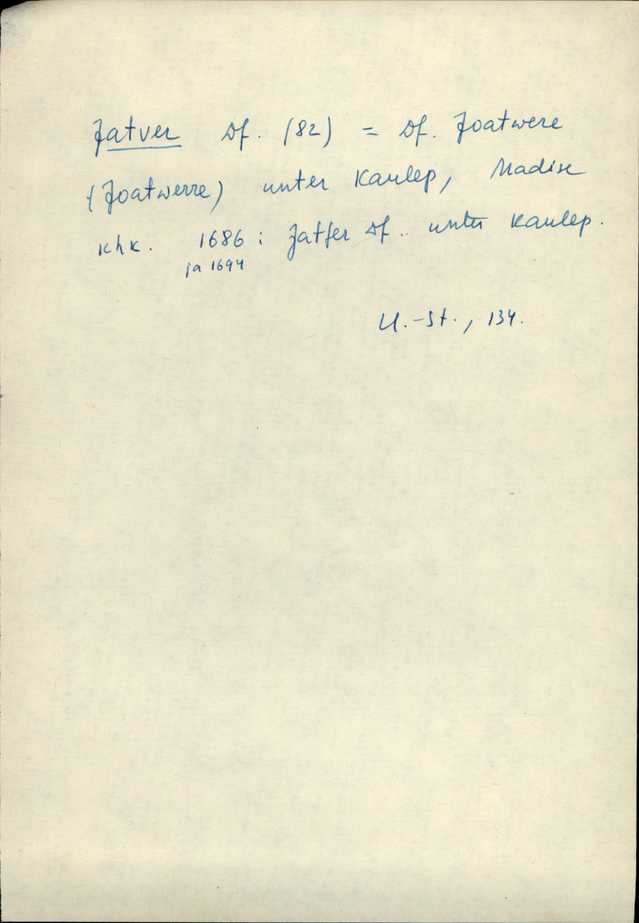 Jatver Df. (82) = Df. Joatwere
(Joatwerre) unter Kaulep, Madise
khk. 1686 : Jatfer Df. unter Kaulep.
ja 1694
U.-St., 134.